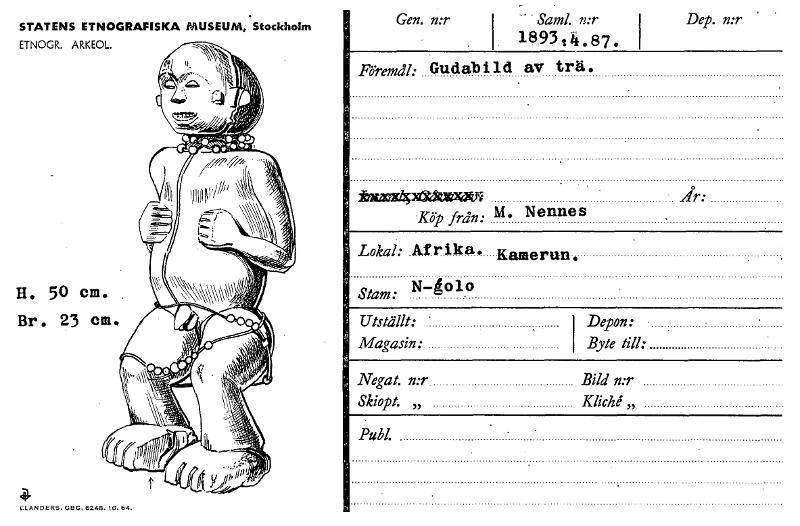 STATENS ETNOGRAFISKA MUSEUM, Stockholm
ETNOGR. ARKEOL.
H. 50 cm.
Br. 23 cm.
ELANDERS. GBG. 6248. 10. 64.
Gen. n:r Saml. n:r Dep. n:r
1893.4.87.
Föremål: Gudabild av trä.
År:
Köp från: M. Nennes
Lokal: Afrika. Kamerun.
Stam: N-golo
Utställt: Depon:
Magasin: Byte till:
Negat. n:r Bild n:r
Skiopt. „ Kliché „
Publ.